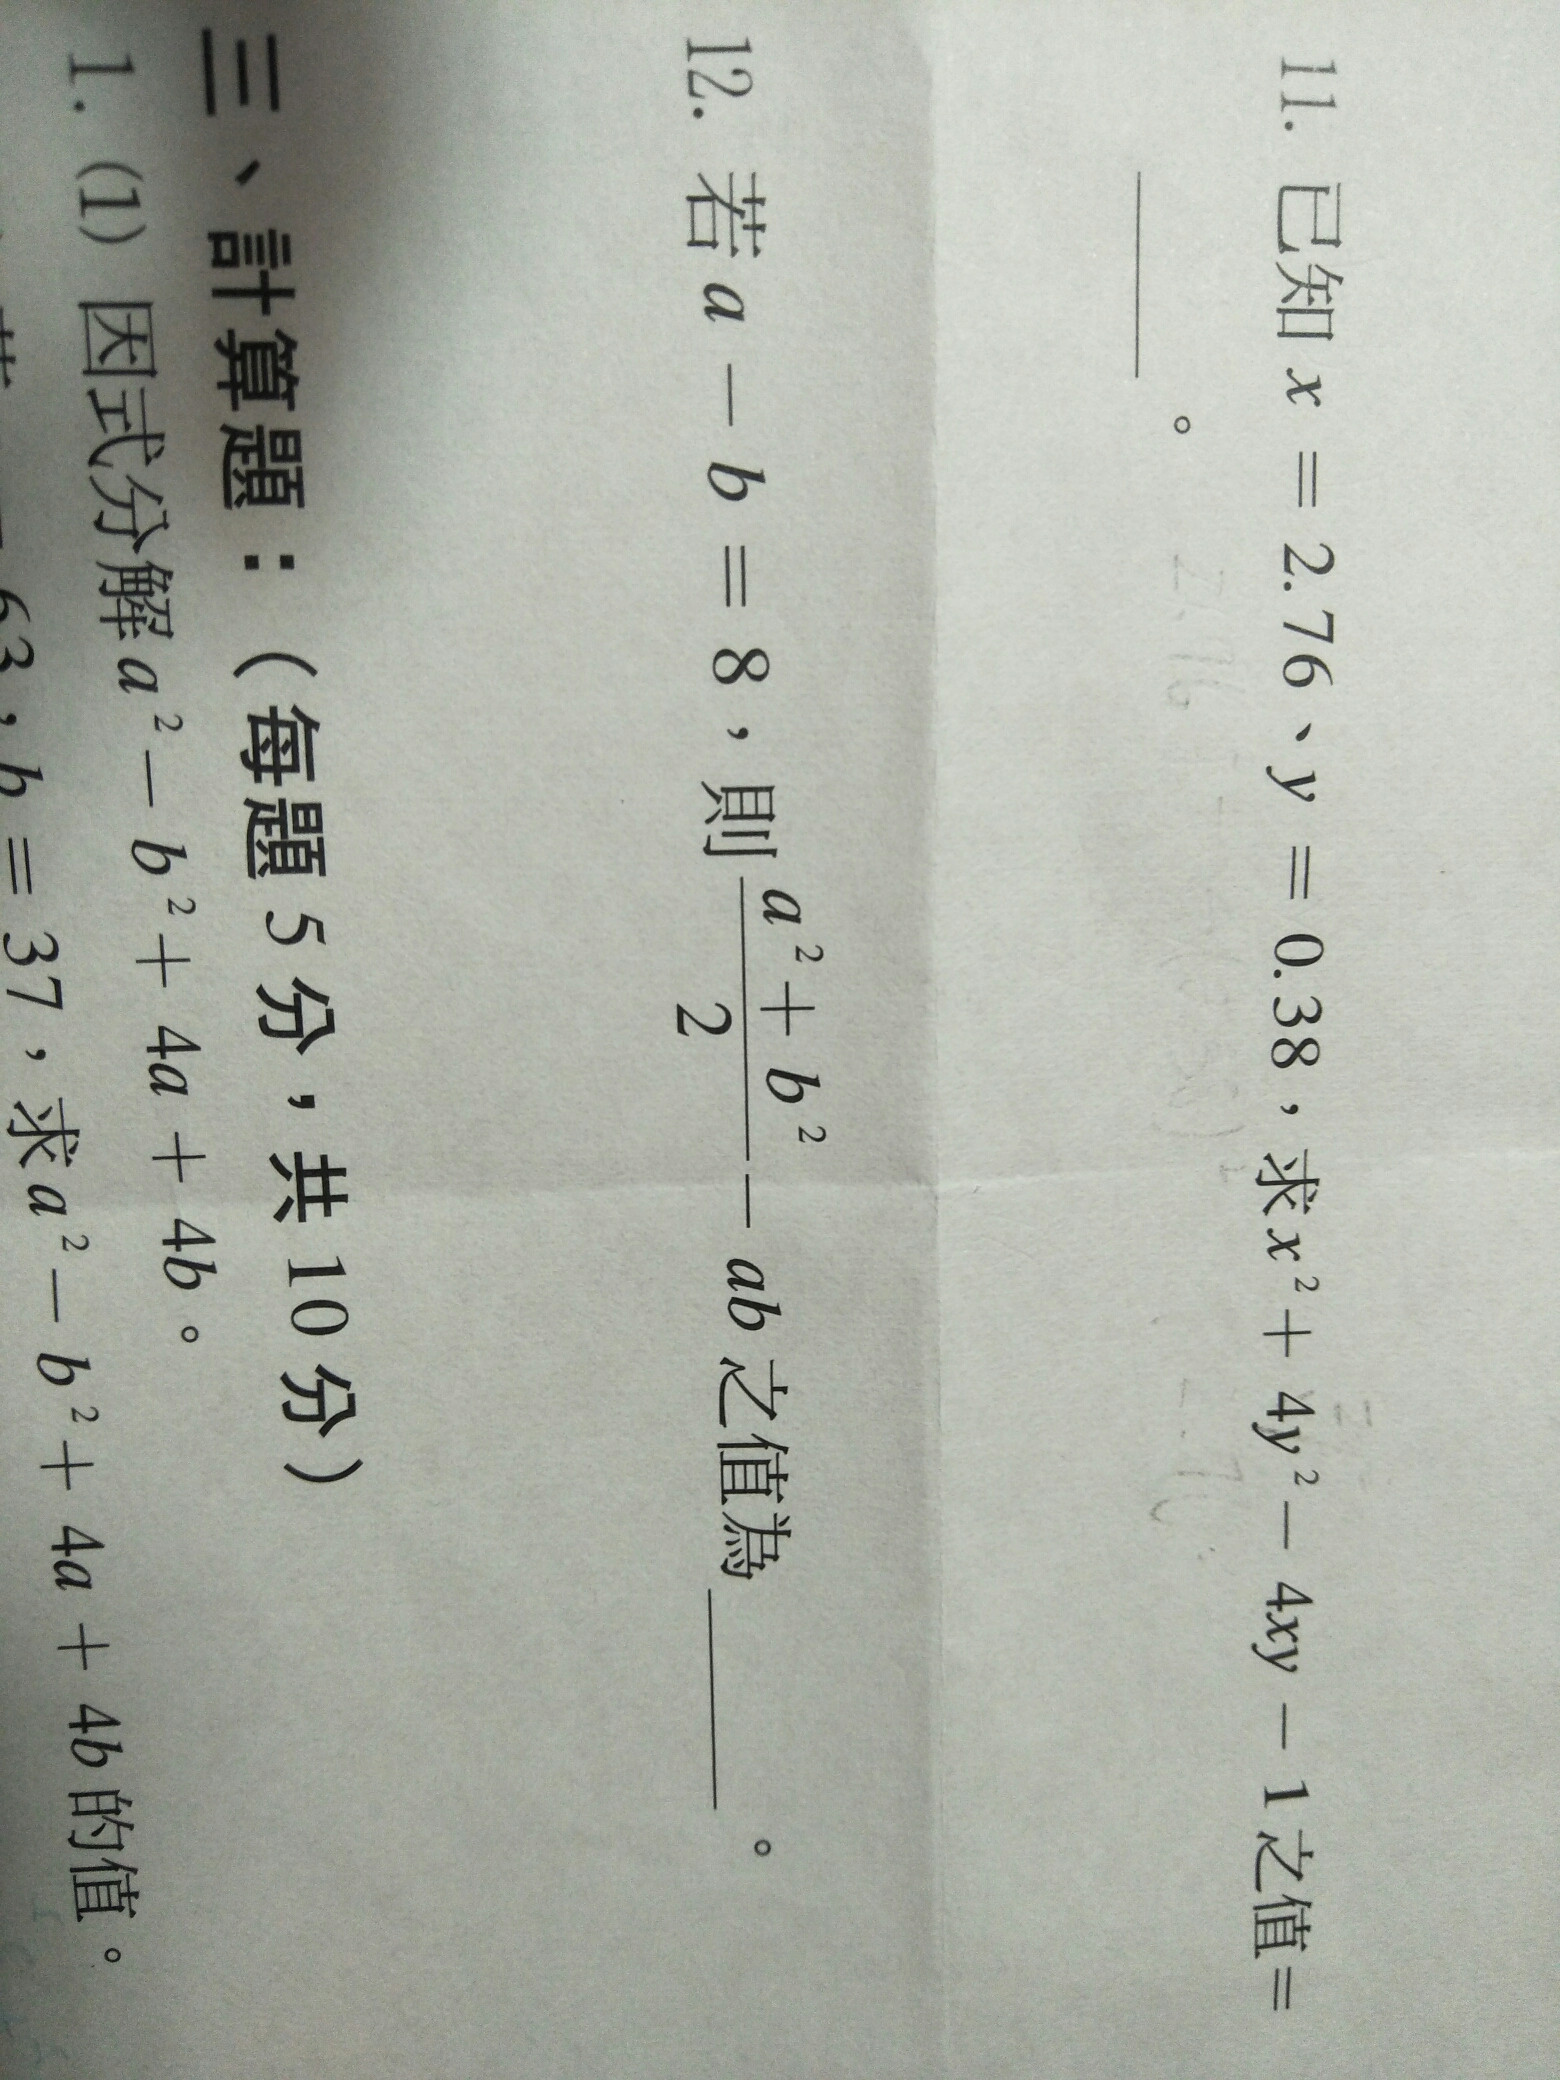 11. 已知 x = 2.76、y = 0.38，求 x² + 4y² − 4xy − 1 之值 =
______。
12. 若 a − b = 8，則 (a² + b²)/2 − ab 之值為______。
三、計算題：（每題 5 分，共 10 分）
1. (1) 因式分解 a² − b² + 4a + 4b。
63，b = 37，求 a² − b² + 4a + 4b 的值。